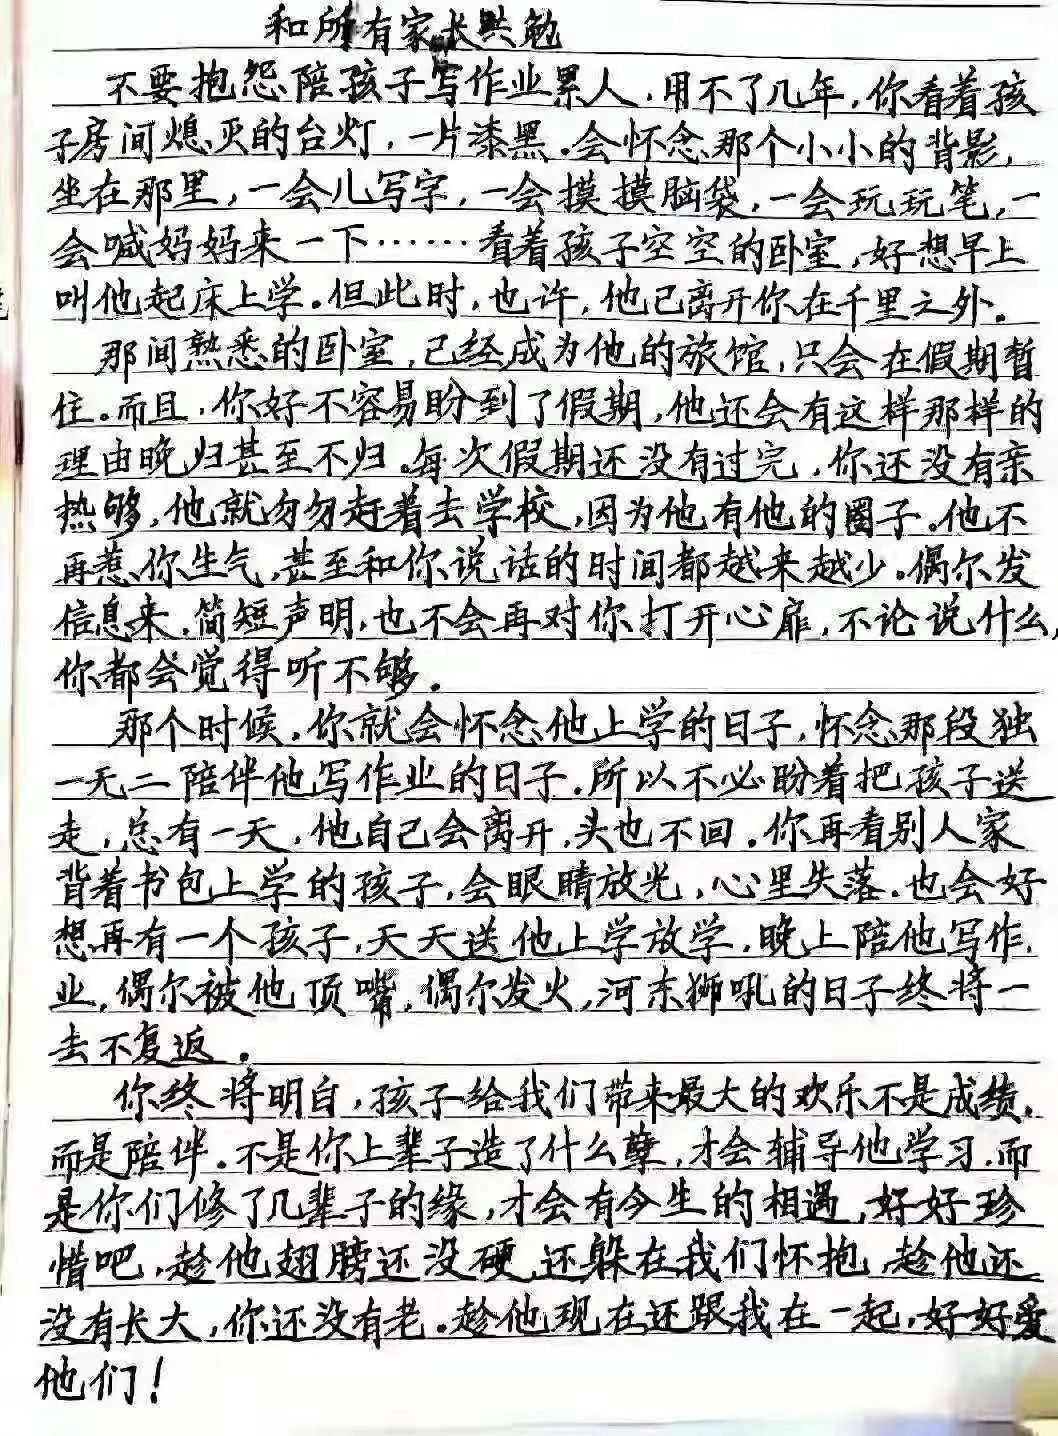 和所有家长共勉
不要抱怨陪孩子写作业累人，用不了几年，你看着孩
子房间熄灭的台灯，一片漆黑．会怀念那个小小的背影，
坐在那里，一会儿写字，一会摸摸脑袋，一会玩玩笔，一
会喊妈妈来一下……看着孩子空空的卧室，好想早上
叫他起床上学。但此时，也许，他已离开你在千里之外。
那间熟悉的卧室，已经成为他的旅馆，只会在假期暂
住。而且，你好不容易盼到了假期，他还会有这样那样的
理由晚归甚至不归。每次假期还没有过完，你还没有亲
热够，他就匆匆赶着去学校，因为他有他的圈子。他不
再惹你生气，甚至和你说话的时间都越来越少。偶尔发
信息来，简短声明，也不会再对你打开心扉，不论说什么，
你都会觉得听不够．
那个时候．你就会怀念他上学的日子，怀念那段独
一无二陪伴他写作业的日子．所以不必盼着把孩子送
走，总有一天，他自己会离开，头也不回．你再看别人家
背着书包上学的孩子，会眼睛放光，心里失落．也会好
想再有一个孩子，天天送他上学放学，晚上陪他写作
业，偶尔被他顶嘴，偶尔发火，河东狮吼的日子终将一
去不复返。
你终将明白，孩子给我们带来最大的欢乐不是成绩，
而是陪伴．不是你上辈子造了什么孽，才会辅导他学习．而
是你们修了几辈子的缘，才会有今生的相遇，好好珍
惜吧，趁他翅膀还没硬，还躲在我们怀抱，趁他还
没有长大，你还没有老．趁他现在还跟我在一起，好好爱
他们！